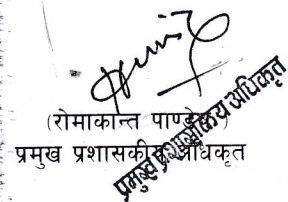 (रोमाकान्त पाण्डेय)
प्रमुख प्रशासकीय अधिकृत
प्रमुख प्रशासकीय अधिकृत